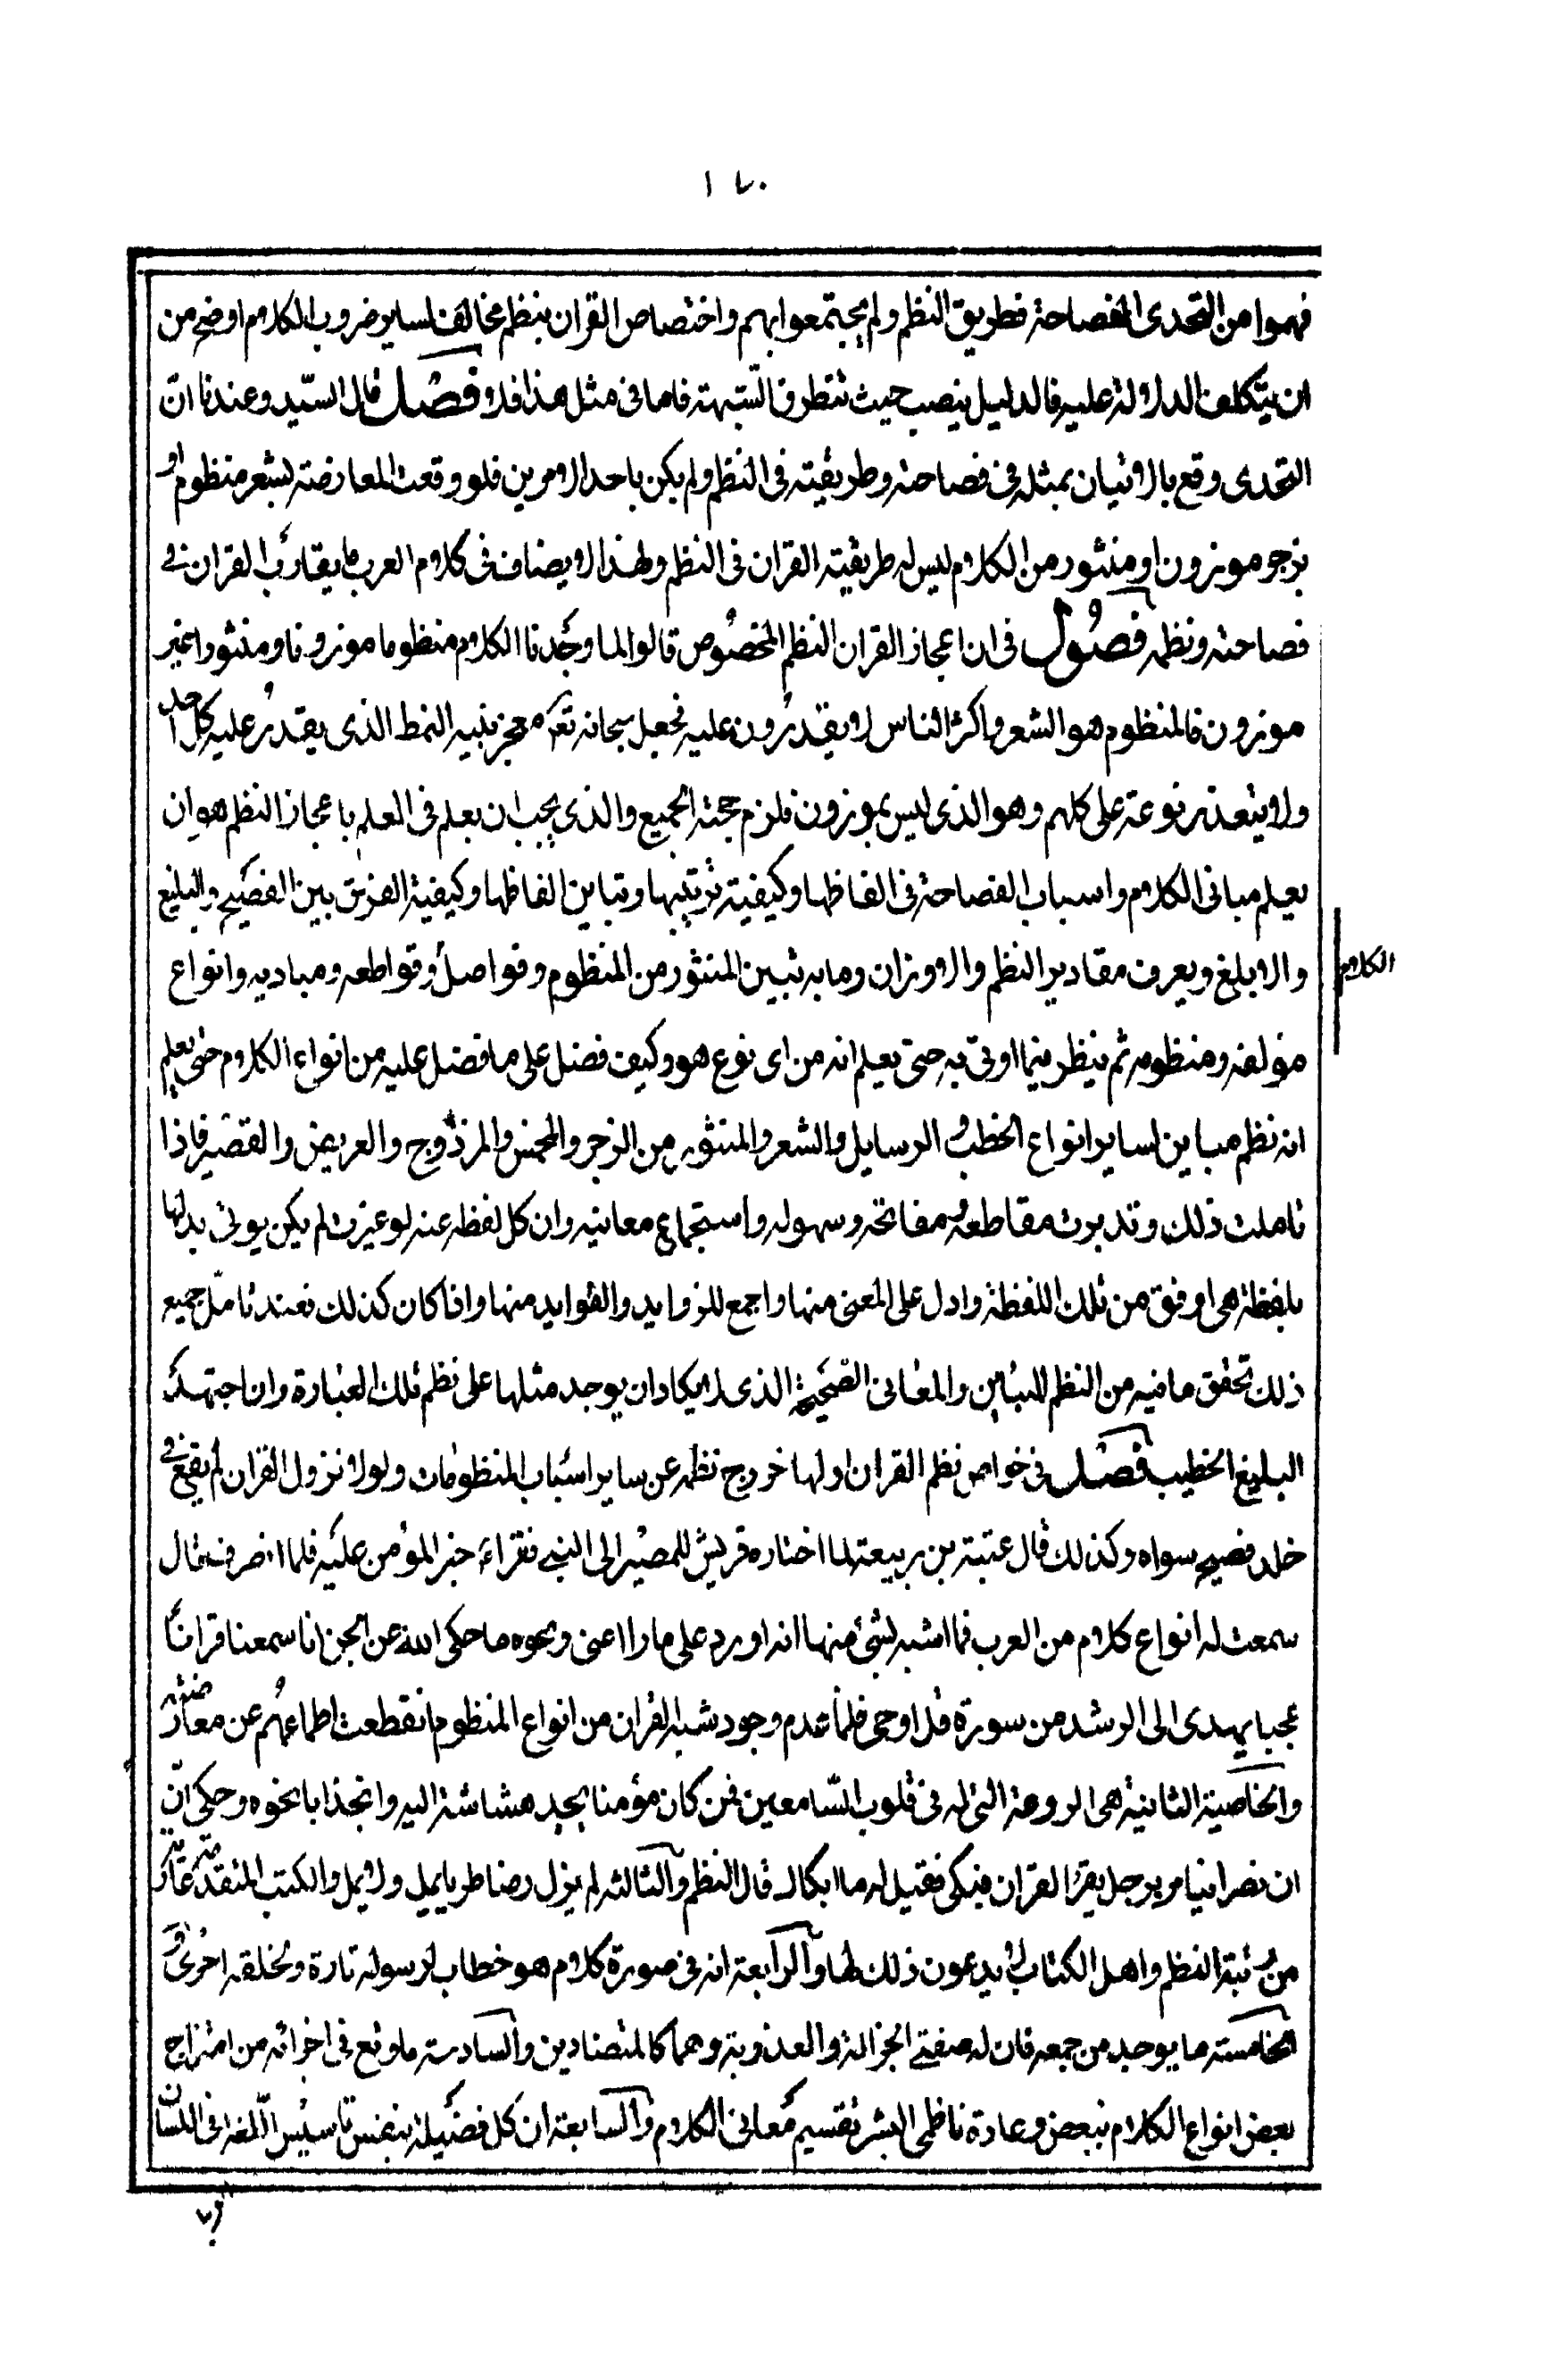 ١٧٠
فهموا من التحدى الفصاحة فطريق النظم ولم يجتمعوا بهم واختصاص القران بنظم مخالف لساير ضروب الكلام اوضح من
ان يتكلف الدلالة عليه فالدليل ينصب حيث تتطرق الشبهة فاما فى مثل هذا فلا فصل قال السيد وعندنا ان
التحدى وقع بالاتيان بمثله فى فصاحته وطريقته فى النظم ولم يكن باحد الامرين فلو وقعت المعارضة بشعر منظوم او
برجز موزون او منثور من الكلام ليس له طريقة القران فى النظم ولهذا لا يصاف فى كلام العرب ما يقارب القران فى
فصاحته ونظمه فصول فى ان اعجاز القران النظم المخصوص قالوا لما وجدنا الكلام منظوما موزونا ومنثورا غير
موزون فالمنظوم هو الشعر واكثر الناس لا يقدرون عليه فجعل سبحانه تع معجز نبيه النمط الذى يقدر عليه كل احد
ولا يتعذر نوعه على كلهم وهو الذى ليس بموزون فلزم حجته الجميع والذى يجب ان يعلم فى العلم باعجاز النظم هو ان
يعلم مبانى الكلام واسباب الفصاحة فى الفاظها وكيفية ترتيبها وتباين الفاظها وكيفية الفرق بين الفصيح والبليغ
والابلغ ويعرف مقادير النظم والاوزان وما به تبين المنثور من المنظوم وفواصل وقواطعه ومباديه وانواع
الكلام
مؤلفه ومنظومه ثم ينظر فيما اوتى به حتى يعلم انه من اى نوع هو وكيف فضل على ما فضل عليه من انواع الكلام حتى يعلم
انه نظم مباين لساير انواع الخطب والرسايل والشعر والمنثور من الرجز والمخمس والمزدوج والعريض والقصير فاذا
تاملت ذلك وتدبرت مقاطعه ومفاتحه وسهوله واستجماع معانيه وان كل لفظه عنه لو غيرت لم يكن يوتى بدلها
بلفظة هى اوفق من تلك اللفظة وادل على المعنى منها واجمع للزوايد والفوايد منها واذا كان كذلك فعند تامل جميع
ذلك تحقق ما فيه من النظم المباين والمعانى الصحيحة الذى لا يكاد ان يوجد مثلها على نظم تلك العبارة وان اجتهد
البليغ الخطيب فصل فى خواص نظم القران اولها خروج نظمه عن ساير اسباب المنظومات ولولا نزول القران لم يقع فى
خلد فصيح سواه وكذلك قال عتبة بن ربيعة لما اختاره قريش للمصير الى النبى فقراء حم المؤمن عليه فلما انصرف قال
سمعت له انواع كلام من العرب فما اشبه بشئ منها انه اورد على ما راعنى ونحوه ما حكى الله عن الجن انا سمعنا قرانا
عجبا يهدى الى الرشد من سورة قل اوحى فلما عدم وجود شبه القران من انواع المنظوم انقطعت اطماعهم عن معارضته
والخاصية الثانية هى الروعة التى له فى قلوب السامعين فمن كان مؤمنا يجد هشاشة اليه وانجذابا نحوه وحكى ان
ان نصرانيا مر برجل يقرا القران فبكى فقيل له ما ابكاك قال النظم والثالثه لم يزل رضا طريا يمل ولا يمل والكتب المتقدمة عارية
من رتبة النظم واهل الكتاب لا يدعون ذلك لها والرابعة انه فى صورة كلام هو خطاب لرسوله تارة ولخلقه اخرى و
الخامسة ما يوجد من جمعه فان له صفتى الجزالة والعذوبة وهما كالمتضادين والسادسة ما وقع فى اجزائه من امتزاج
بعض انواع الكلام ببعض وعادة ناظمى البشر تقسيم معانى الكلام والسابعة ان كل فضيلة بنفس تاسيس اللغة فى اللسان